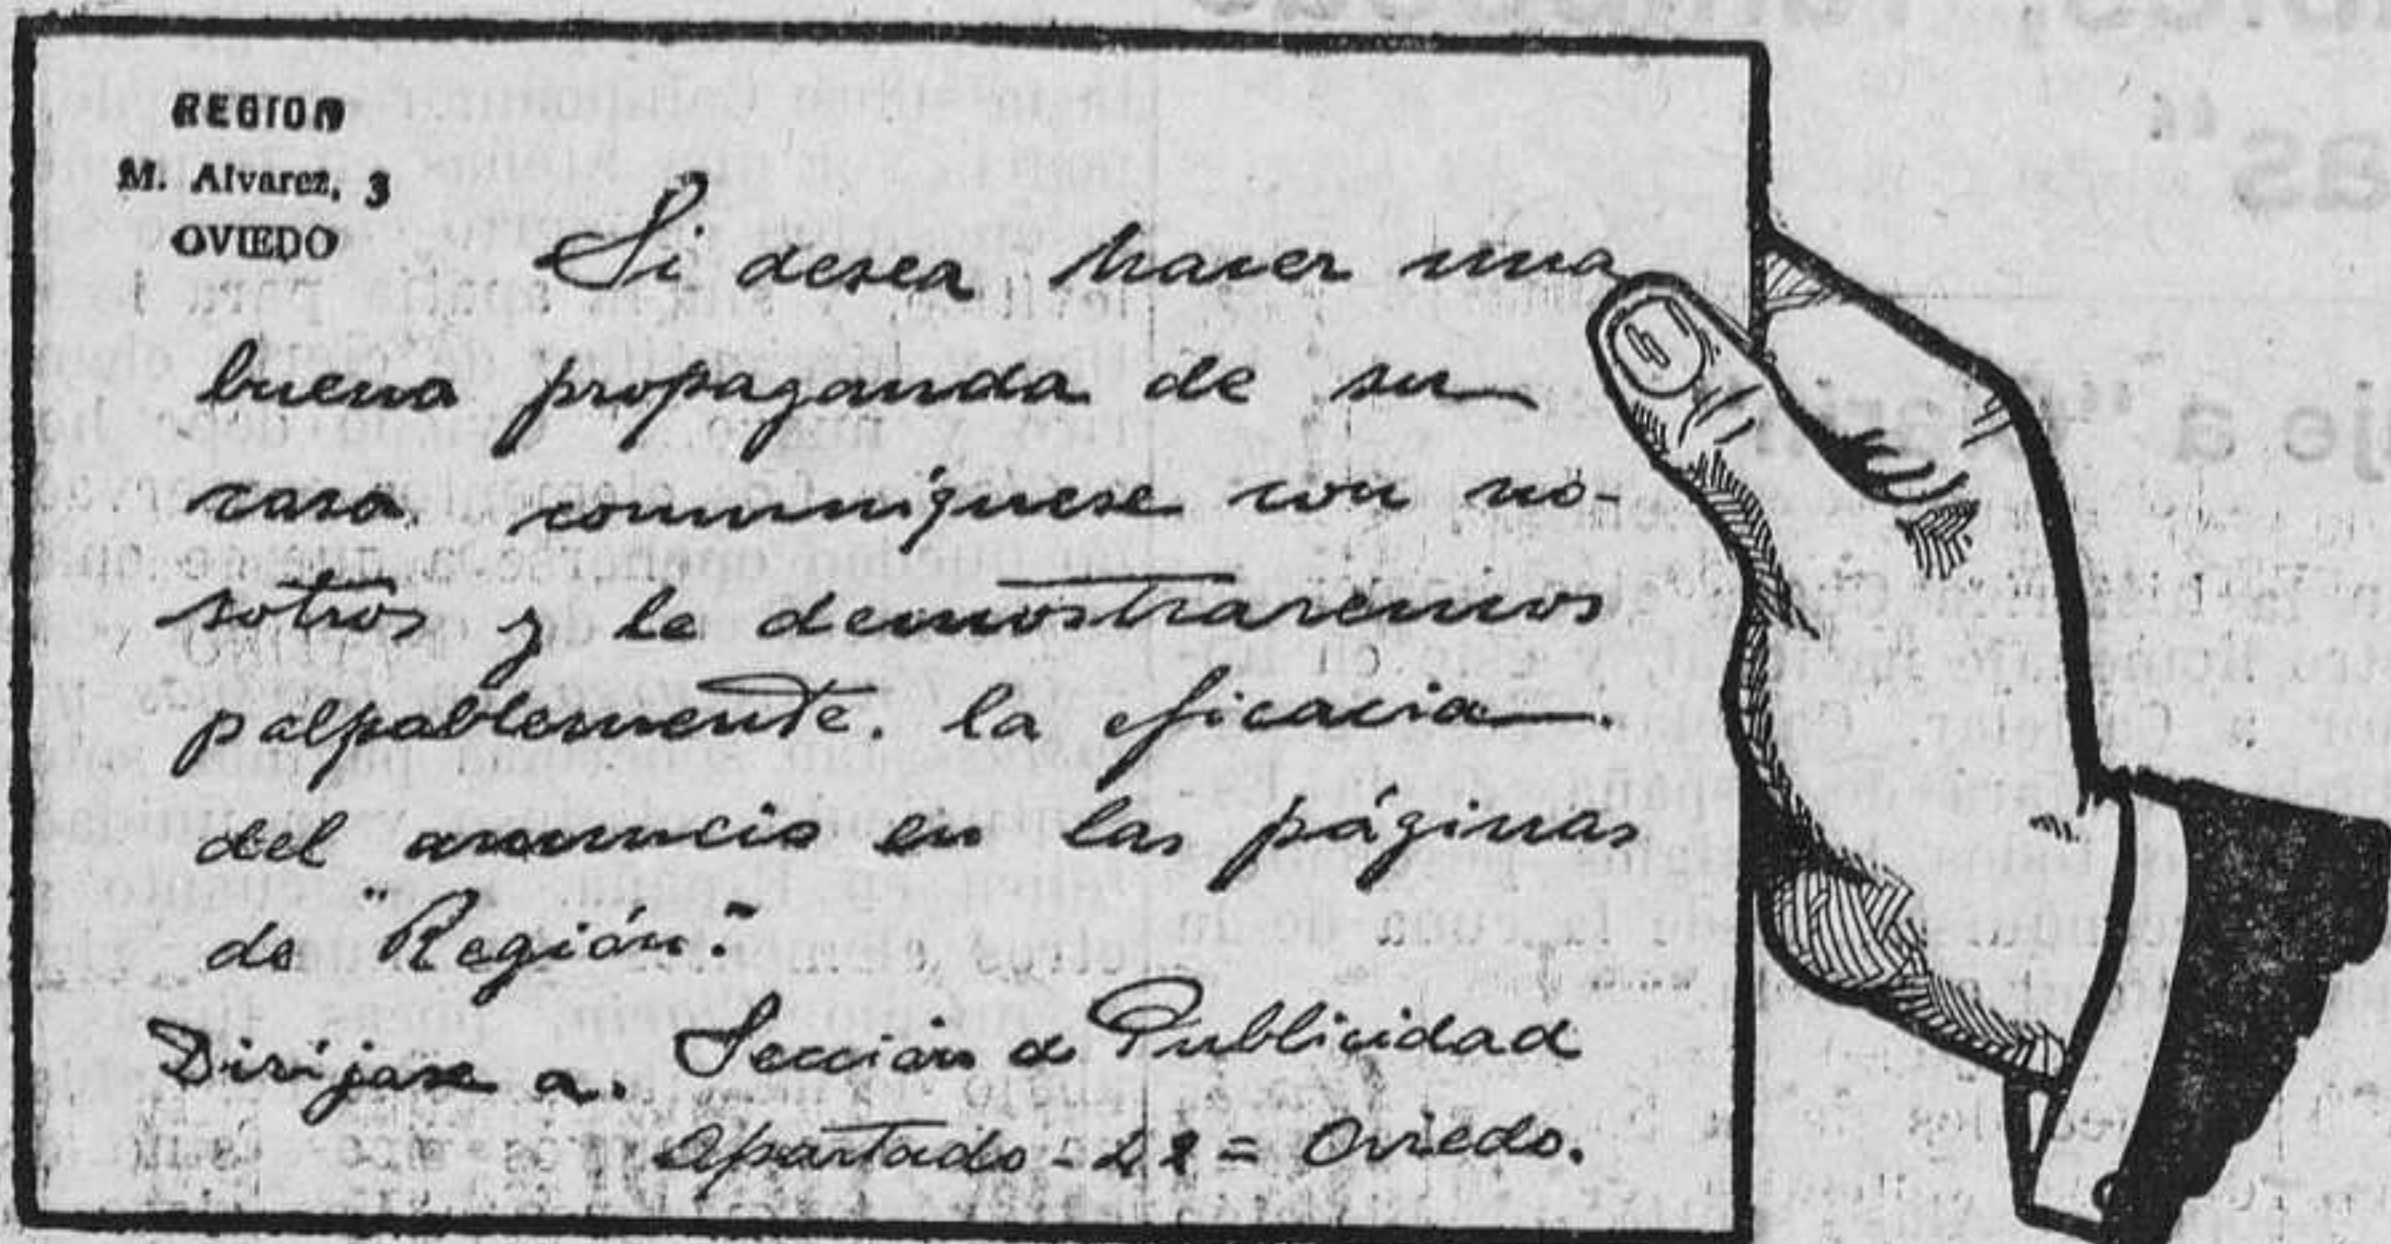 REGION
M. Alvarez, 3
OVIEDO
Si desea hacer una
buena propaganda de su
casa. comuníquese con no-
sotros y le demostraremos
palpablemente. la eficacia.
del anuncio en las páginas
de "Región".
Dirijase a. Sección de Publicidad
Apartado - 42 = Oviedo.